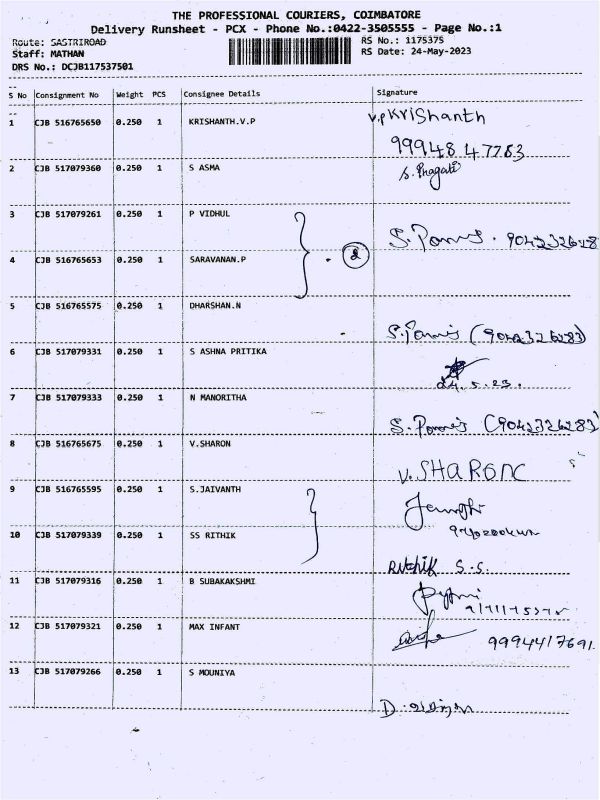 THE PROFESSIONAL COURIERS, COIMBATORE
Delivery Runsheet - PCX - Phone No.:0422-3505555 - Page No.:1
Route: SASTRIROAD
RS No.: 1175375
Staff: MATHAN
RS Date: 24-May-2023
DRS No.: DCJB117537501
S No Consignment No Weight PCS Consignee Details Signature
1 CJB 516765650 0.250 1 KRISHANTH.V.P V.P Krishanth
9994847783
2 CJB 517079360 0.250 1 S ASMA S. Pragati
3 CJB 517079261 0.250 1 P VIDHUL
2
4 CJB 516765653 0.250 1 SARAVANAN.P
5 CJB 516765575 0.250 1 DHARSHAN.N
(9042326283)
6 CJB 517079331 0.250 1 S ASHNA PRITIKA
24.5.23.
7 CJB 517079333 0.250 1 N MANORITHA
(9042326283)
8 CJB 516765675 0.250 1 V.SHARON
V. SHARON
9 CJB 516765595 0.250 1 S.JAIVANTH
10 CJB 517079339 0.250 1 SS RITHIK
Rithik S.S.
11 CJB 517079316 0.250 1 B SUBAKAKSHMI
12 CJB 517079321 0.250 1 MAX INFANT 9994417691.
13 CJB 517079266 0.250 1 S MOUNIYA